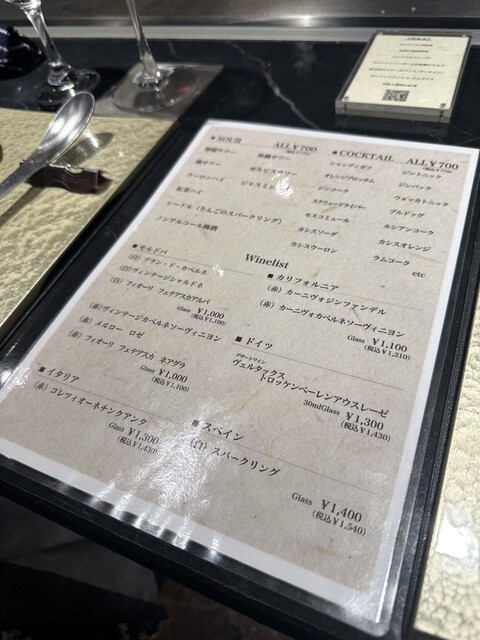 ■ SOUR ALL¥700
梅サワー カルピスサワー
ウーロンハイ ジャスミン
紅茶ハイ
シードル(りんごのスパークリング)
ノンアルコール梅酒
■ COCKTAIL ALL¥700
シャンディガフ ジントニック
オレンジブロッサム ジンバック
ジンコーク ウォッカトニック
スクリュードライバー ブルドッグ
モスコミュール ルシアンコーク
カシスソーダ カシスオレンジ
カシスウーロン ラムコーク
etc
Winelist
■ モルドバ
(白) ブラン・ド・カベルネ
(白) ヴィンテージシャルドネ
(白) フィオーリ フェテアスカアルバ
Glass ¥1,000
(税込¥1,100)
(赤) ヴィンテージカベルネソーヴィニヨン
(赤) メルロー ロゼ
(赤) フィオーリ フェテアスカ ネアグラ
Glass ¥1,000
(税込¥1,100)
■ イタリア
(赤) コレッツィオーネチンクアンタ
Glass ¥1,300
(税込¥1,430)
■ カリフォルニア
(赤) カーニヴォジンファンデル
(赤) カーニヴォカベルネソーヴィニヨン
Glass ¥1,100
(税込¥1,210)
■ ドイツ
デザートワイン
ヴェルタックス
トロッケンベーレンアウスレーゼ
30mlGlass ¥1,300
(税込¥1,430)
■ スペイン
(白) スパークリング
Glass ¥1,400
(税込¥1,540)